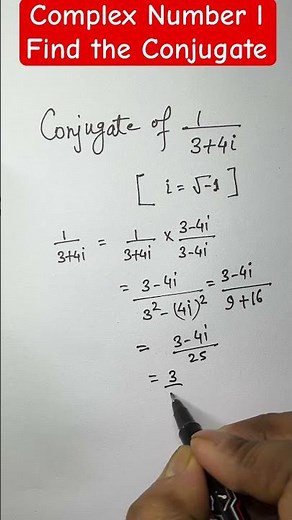 Complex Number I
Find the Conjugate
Conjugate of 1/(3+4i)
[ i = √-1 ]
1/(3+4i) = 1/(3+4i) × (3-4i)/(3-4i)
= (3-4i)/(3² - (4i)²) = (3-4i)/(9+16)
= (3-4i)/25
= 3/